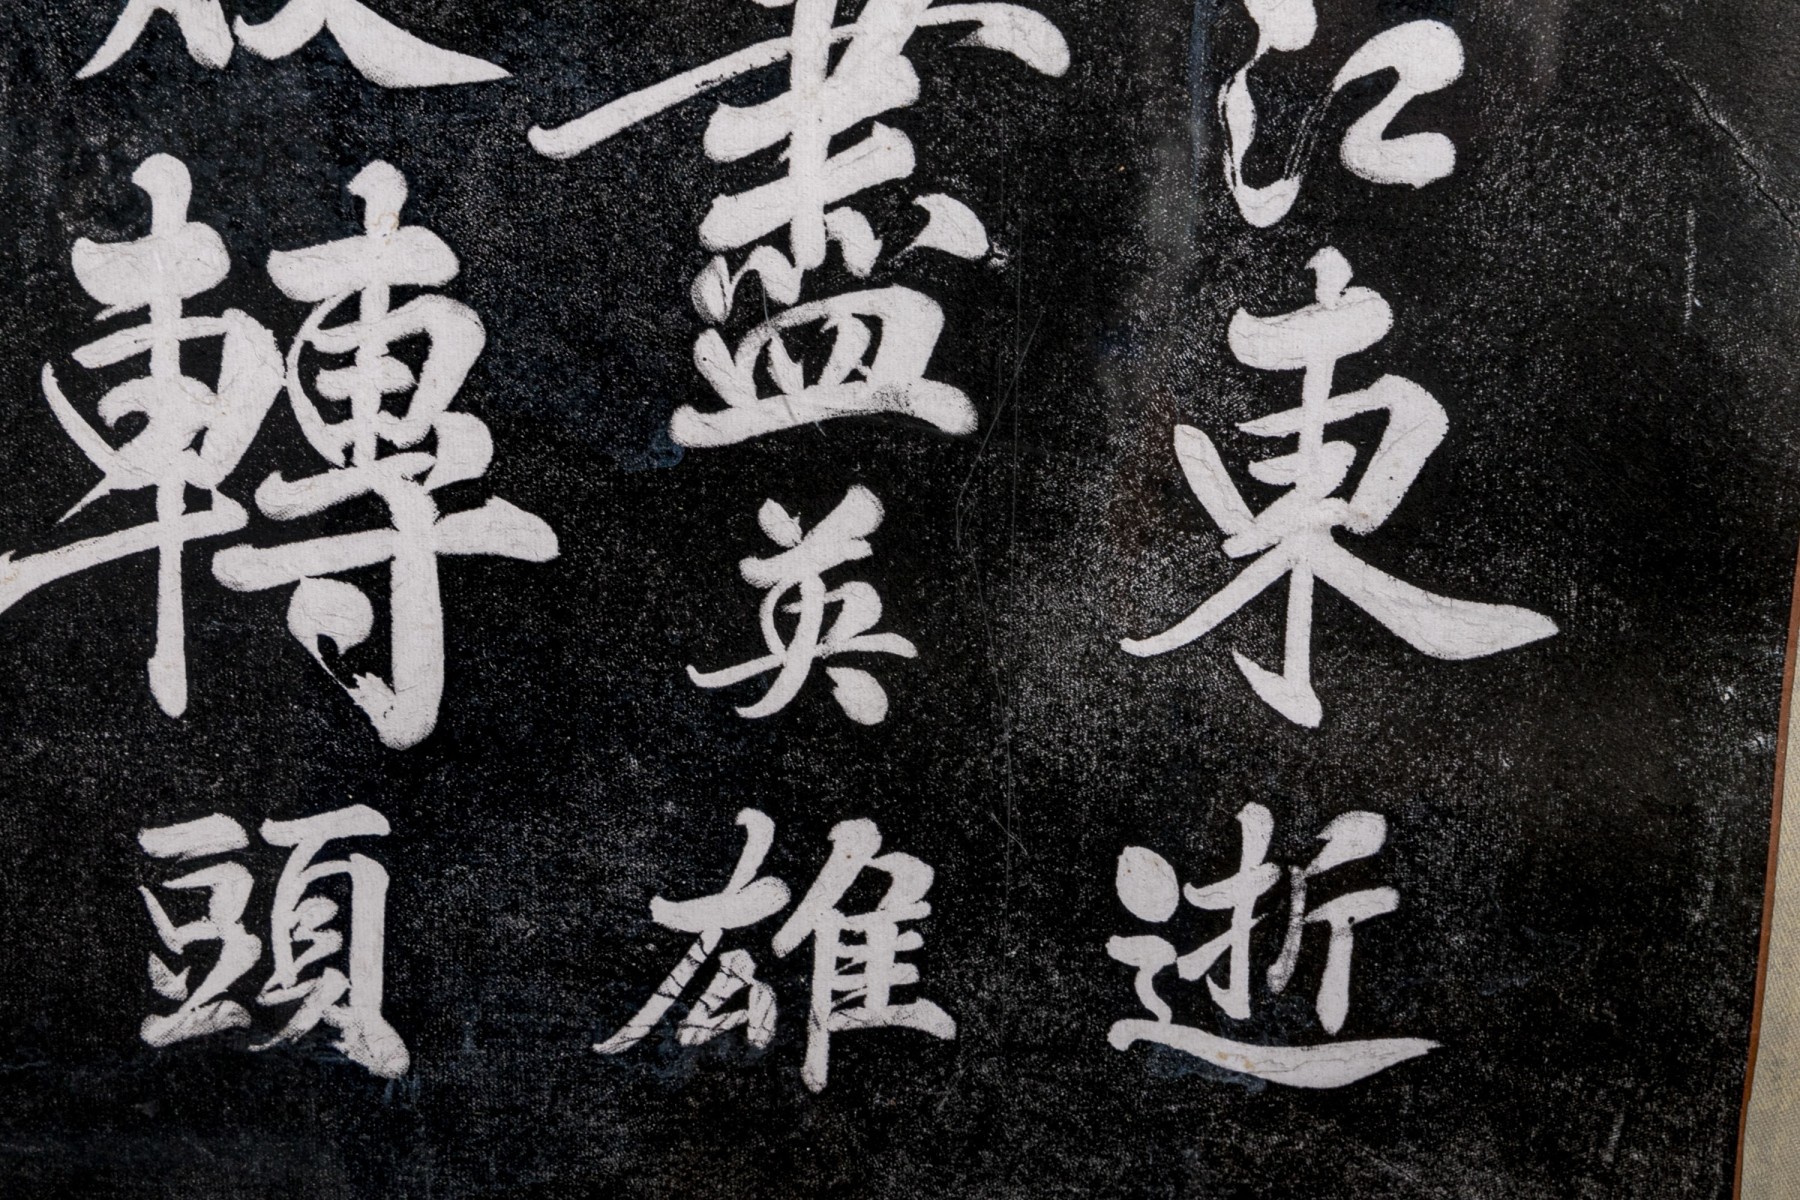 江東逝
盡英雄
轉頭